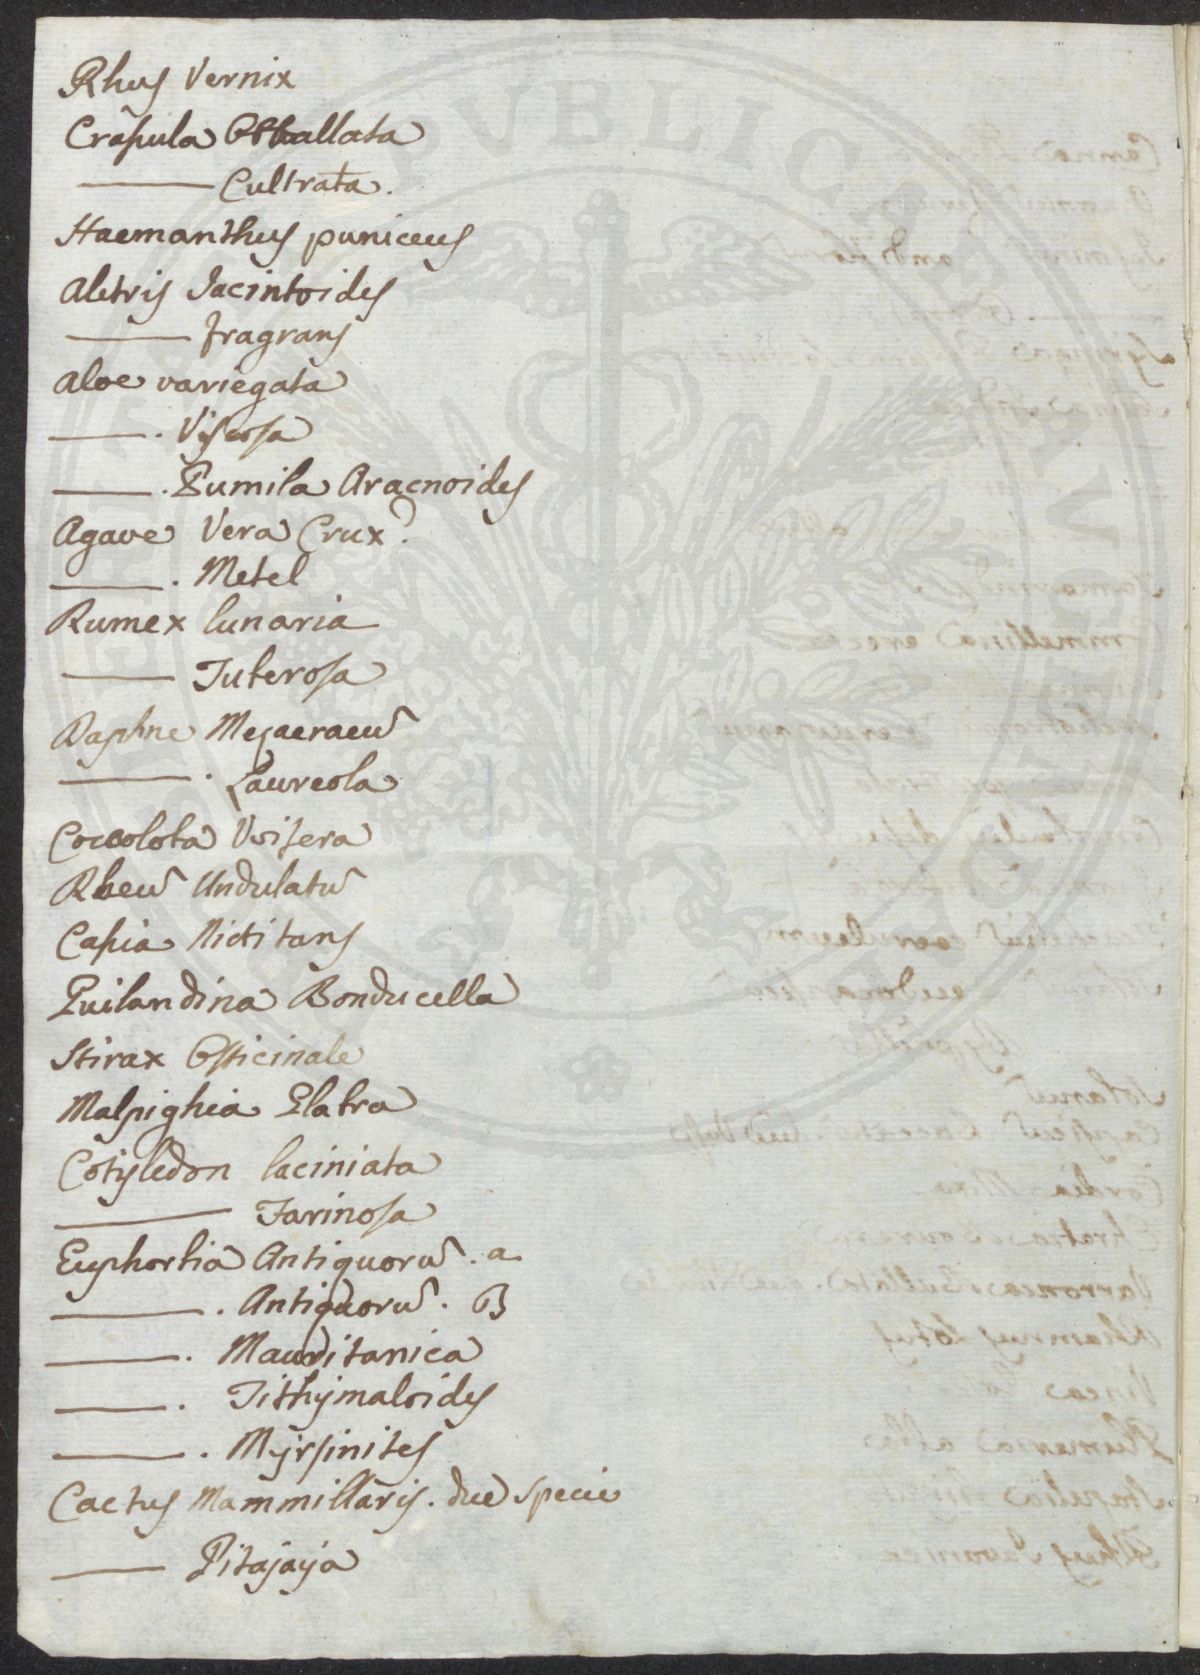 Rhus Vernix
Craſsula Obballata
——— Cultrata.
Haemanthus puniceus
Aletris Jacintoides
——— fragrans
Aloe variegata
———. Viscosa
———. Pumila Aracnoides
Agave Vera Crux?
———. Metel
Rumex lunaria
——— Tuberosa
Daphne Mezaeraeu͂
———. Laureola
Coccoloba Uvifera
Rheu͂ Undulatu͂
Caſsia Nictitans
Guilandina Bonducella
Stirax Officinale
Malpighia Glabra
Cotyledon laciniata
——— Farinosa
Euphorbia Antiquoru͂. a
———. Antiquoru͂. B
———. Mauritanica
———. Tithymaloides
———. Myrsinites
Cactus Mammillaris. due specie
——— Pitajaya